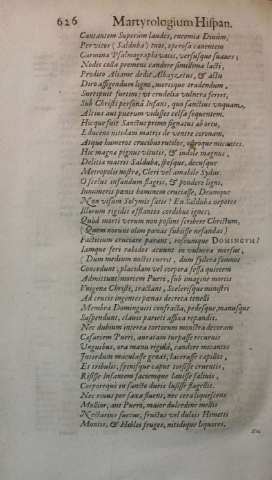 626 Martyrologium Hispan.
Cantantem Superùm laudes, encomia Divûm,
Per vicos (Salduba) tuos, operosa canentem
Carmina Psalmographa vatis, versusque suaves:
Nodis colla premens candore simillima lacti,
Prodito Albame dedit Albayzetus, & actu
Dira assigendum ligno, mercique tradendum,
Surripuit furtim: ut crudelia vulnera ferret,
Sub Christi persona Infans, quo sanctius unquam,
Altius aut puerum vidisset celsa sequentem.
Hic que fuit Sanctus primo signatus ab ortu,
E ducens nitidam matris de ventre coronam,
Atque humeros crucibus rutilos, micantes.
Hic magna pignus virtutis, & indole magnus,
Delitia matris Salduba, spesque, decusque
Metropolis nostra, Cleri vel amabile Sydus.
O scelus infandum flagris, & pondere ligni,
Innumeris pœnis hominem cruciasse, Deumque
Non visum Solymis satis! En Salduba nepotes
Illorum rigidis assistantes cordibus ignes,
Quod morti verum non possint scribere Christum,
(Quem novint olim pœnas subiisse nefandas)
Facticium cruciare parant, rosiumque DOMINGVM!
Iamque feri rabides acuunt in vulnera morsus,
(Dum medium noctis currit, dum sydera somnos
Concedunt, placidam vel corpora fessa quietem
Admittunt) mortem Pueri, sub imagine mortis
Vnigena Christi, tractant, Scelerisque ministri
Ad crucis ingemens pœnas decreta tenelli
Membra Dominguiti confracta, pedesque, manusque
Suspendunt, clavis parieti affixa repandis.
Nec dubium interea tortorum monstra decoram
Cæsariem Pueri, auratam turpasse recurvis
Vnguibus, ora manu rigida, candore micantes
Interdum maculasse genas, lacerasse capillos,
Et tribulis, spinisque caput torsisse cruentis,
Risisse Infantem faciemque lavisse salivis,
Corporeque in sancto duris lusisse flagellis.
Nec vox per saxa fluens, nec cera liquescens
Mollior, aut Pueri, maior dulcedine mellis
Nectareus succus, fructus vel dulcis Himetti
Montis, & Hyblæi fruges, nitidique liquores,